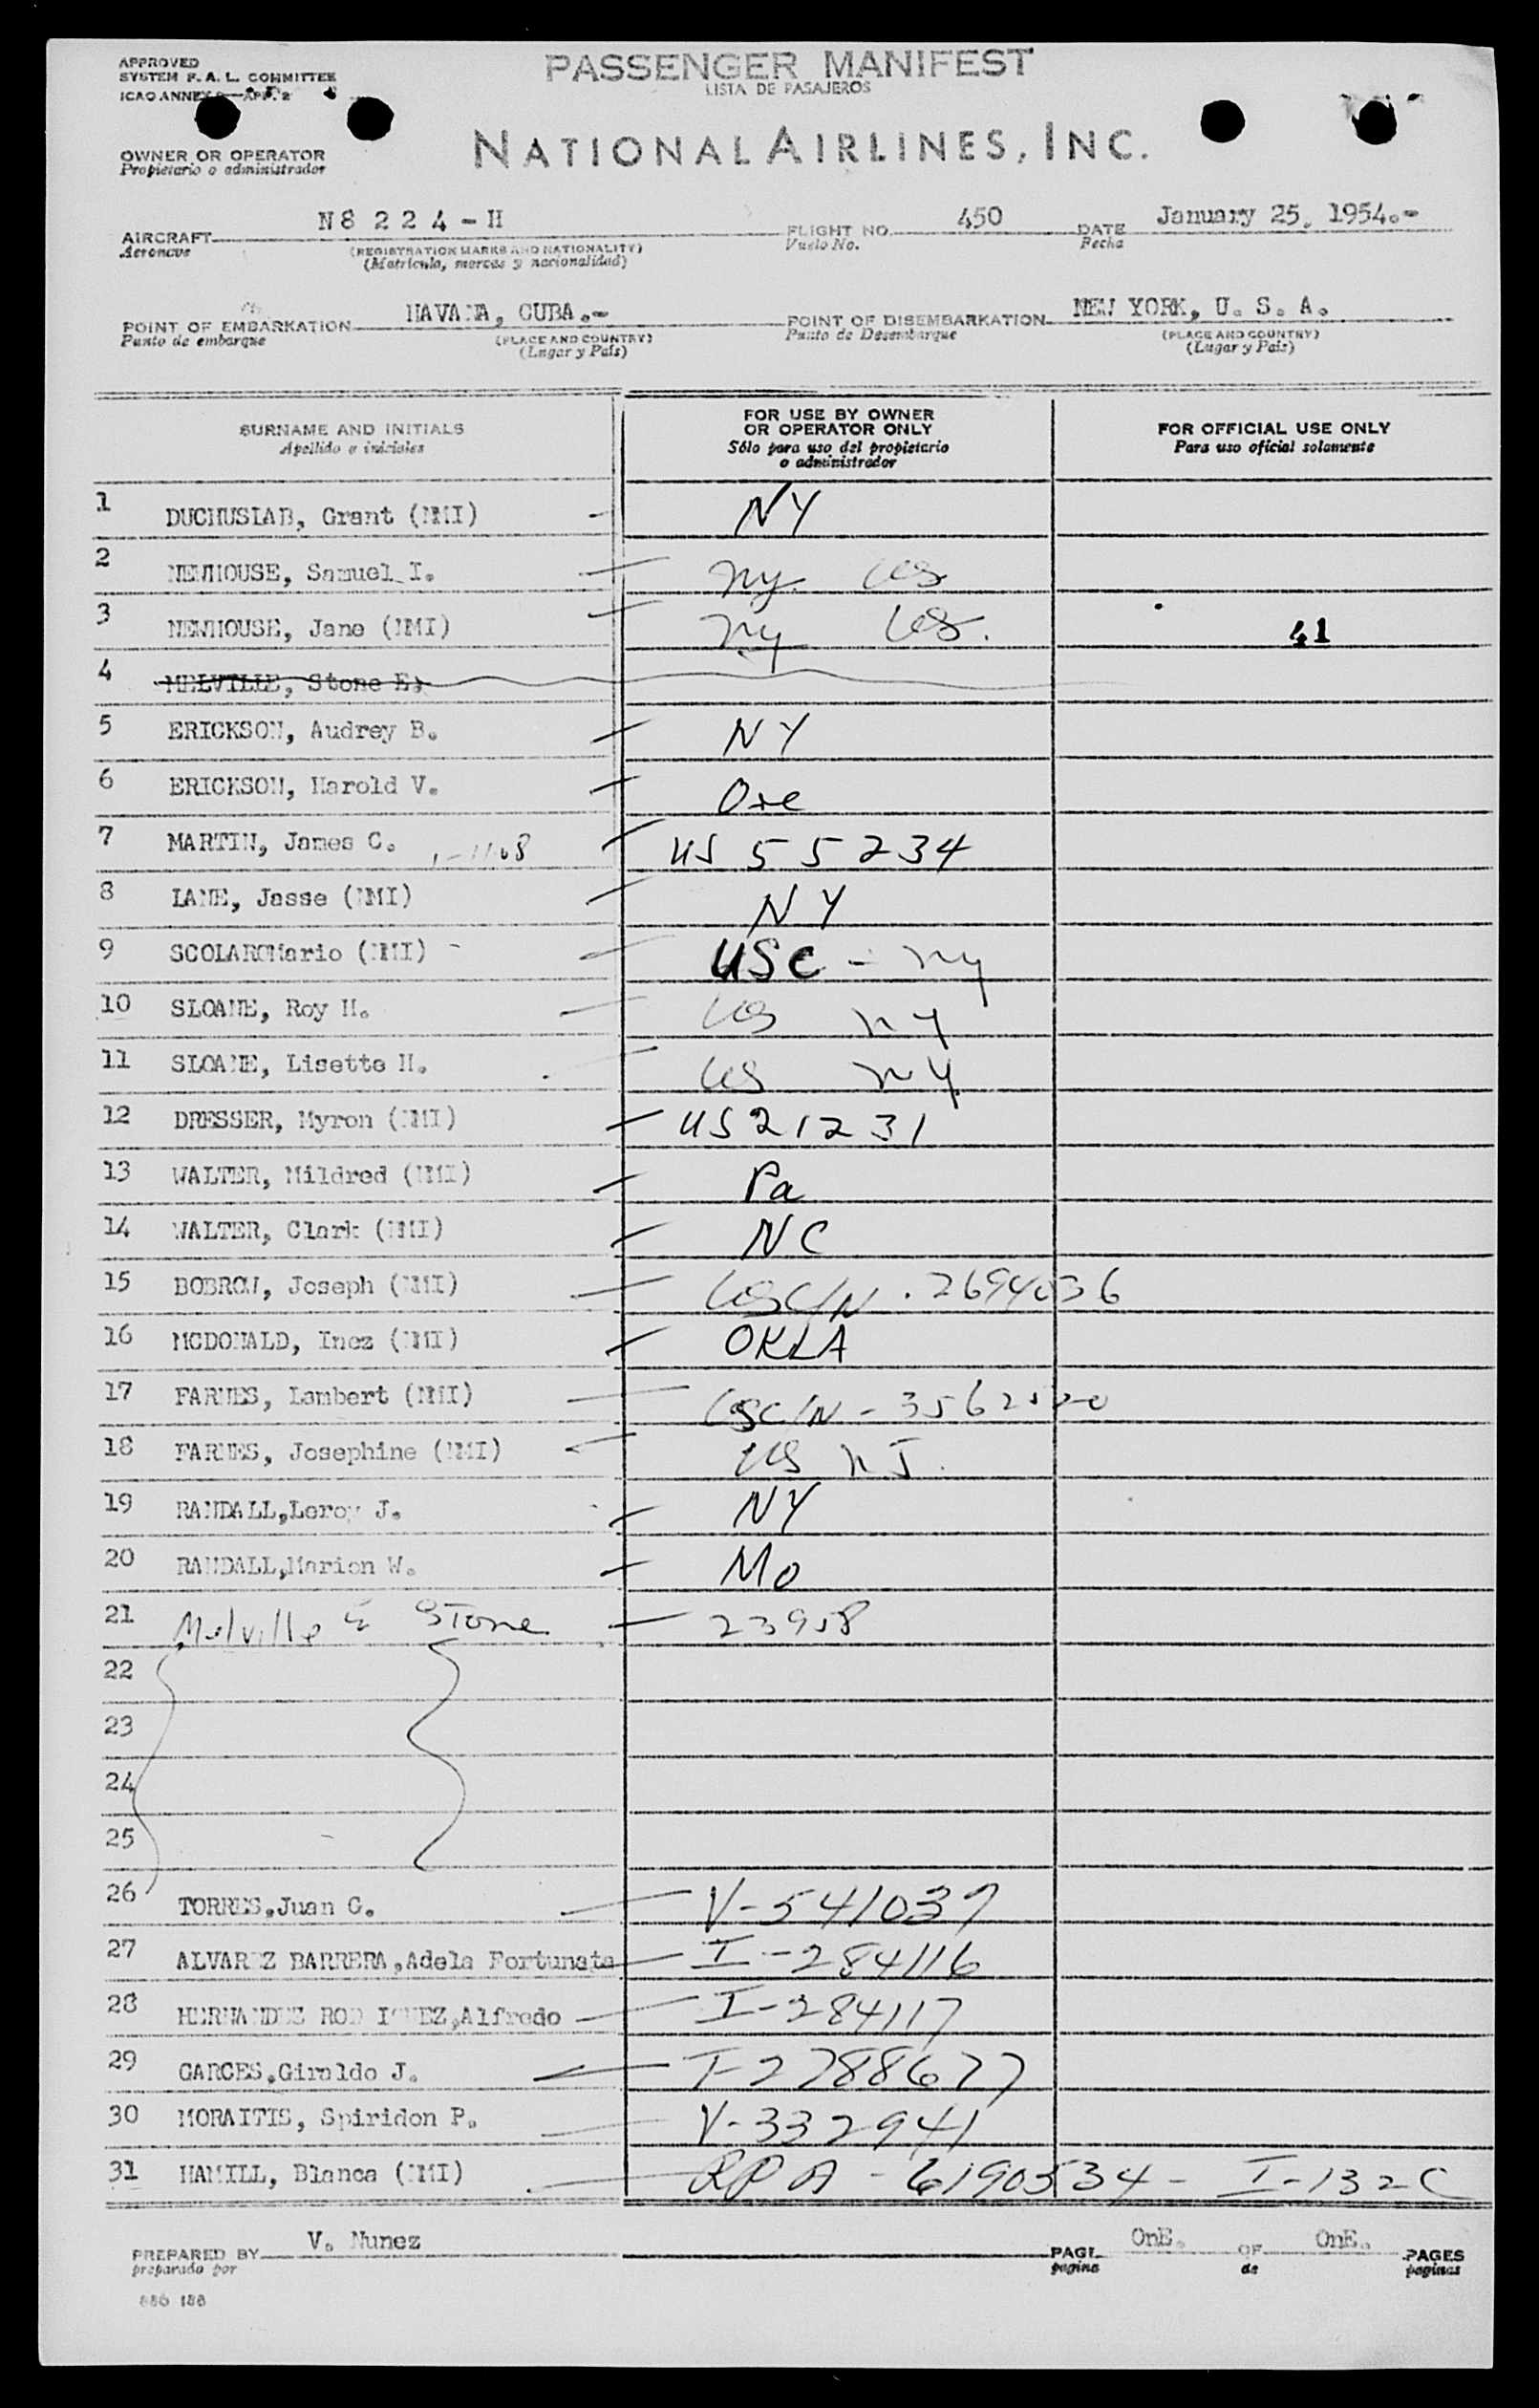 APPROVED
SYSTEM F. A. L. COMMITTEE
ICAO ANNEX 9—APP. 2
PASSENGER MANIFEST
LISTA DE PASAJEROS
OWNER OR OPERATOR
Propietario o administrador
NATIONAL AIRLINES, INC.
AIRCRAFT N8 2 2 4 - H FLIGHT NO. 450 DATE January 25, 1954.-
Aeronave (REGISTRATION MARKS AND NATIONALITY) Vuelo No. Fecha
(Matrícula, marcas y nacionalidad)
POINT OF EMBARKATION HAVANA, CUBA.- POINT OF DISEMBARKATION NEW YORK, U. S. A.
Punto de embarque (PLACE AND COUNTRY) Punto de Desembarque (PLACE AND COUNTRY)
(Lugar y País) (Lugar y País)
SURNAME AND INITIALS FOR USE BY OWNER OR OPERATOR ONLY FOR OFFICIAL USE ONLY
Apellido e iniciales Sólo para uso del propietario o administrador Para uso oficial solamente
1 DUCHUSLAB, Grant (NMI) - NY
2 NEWHOUSE, Samuel I. — ny. US
3 NEWHOUSE, Jane (NMI) — ny US. 41
4 MELVILLE, Stone E.
5 ERICKSON, Audrey B. — NY
6 ERICKSON, Harold V. — Ore
7 MARTIN, James C. — US 55234
8 LANE, Jasse (NMI) — NY
9 SCOLAROMario (NMI) - — USC - ny
10 SLOANE, Roy H. — US ny
11 SLOANE, Lisette H. — US ny
12 DRESSER, Myron (NMI) — US21231
13 WALTER, Mildred (NMI) — Pa
14 WALTER, Clark (NMI) — NC
15 BOBROW, Joseph (NMI) — USC/N . 2694036
16 MCDONALD, Inez (NMI) — OKLA
17 FARNES, Lambert (NMI) — USC/N -
18 FARNES, Josephine (NMI) — US NJ.
19 RANDALL,Leroy J. — NY
20 RANDALL,Marion W. — Mo
21 Melville E Stone — 23958
22
23
24
25
26 TORRES,Juan G. — V-541037
27 ALVAREZ BARRERA,Adela Fortunata — I-284116
28 HERNANDEZ RODRIGUEZ,Alfredo — I-284117
29 GARCES,Giraldo J. — I-2788677
30 MORAITIS, Spiridon P. — V-332941
31 HAMILL, Blanca (NMI) — RPA - 6190534 - I-132C
PREPARED BY V. Nunez PAGE OnE. OF OnE. PAGES
preparado por pagina de paginas